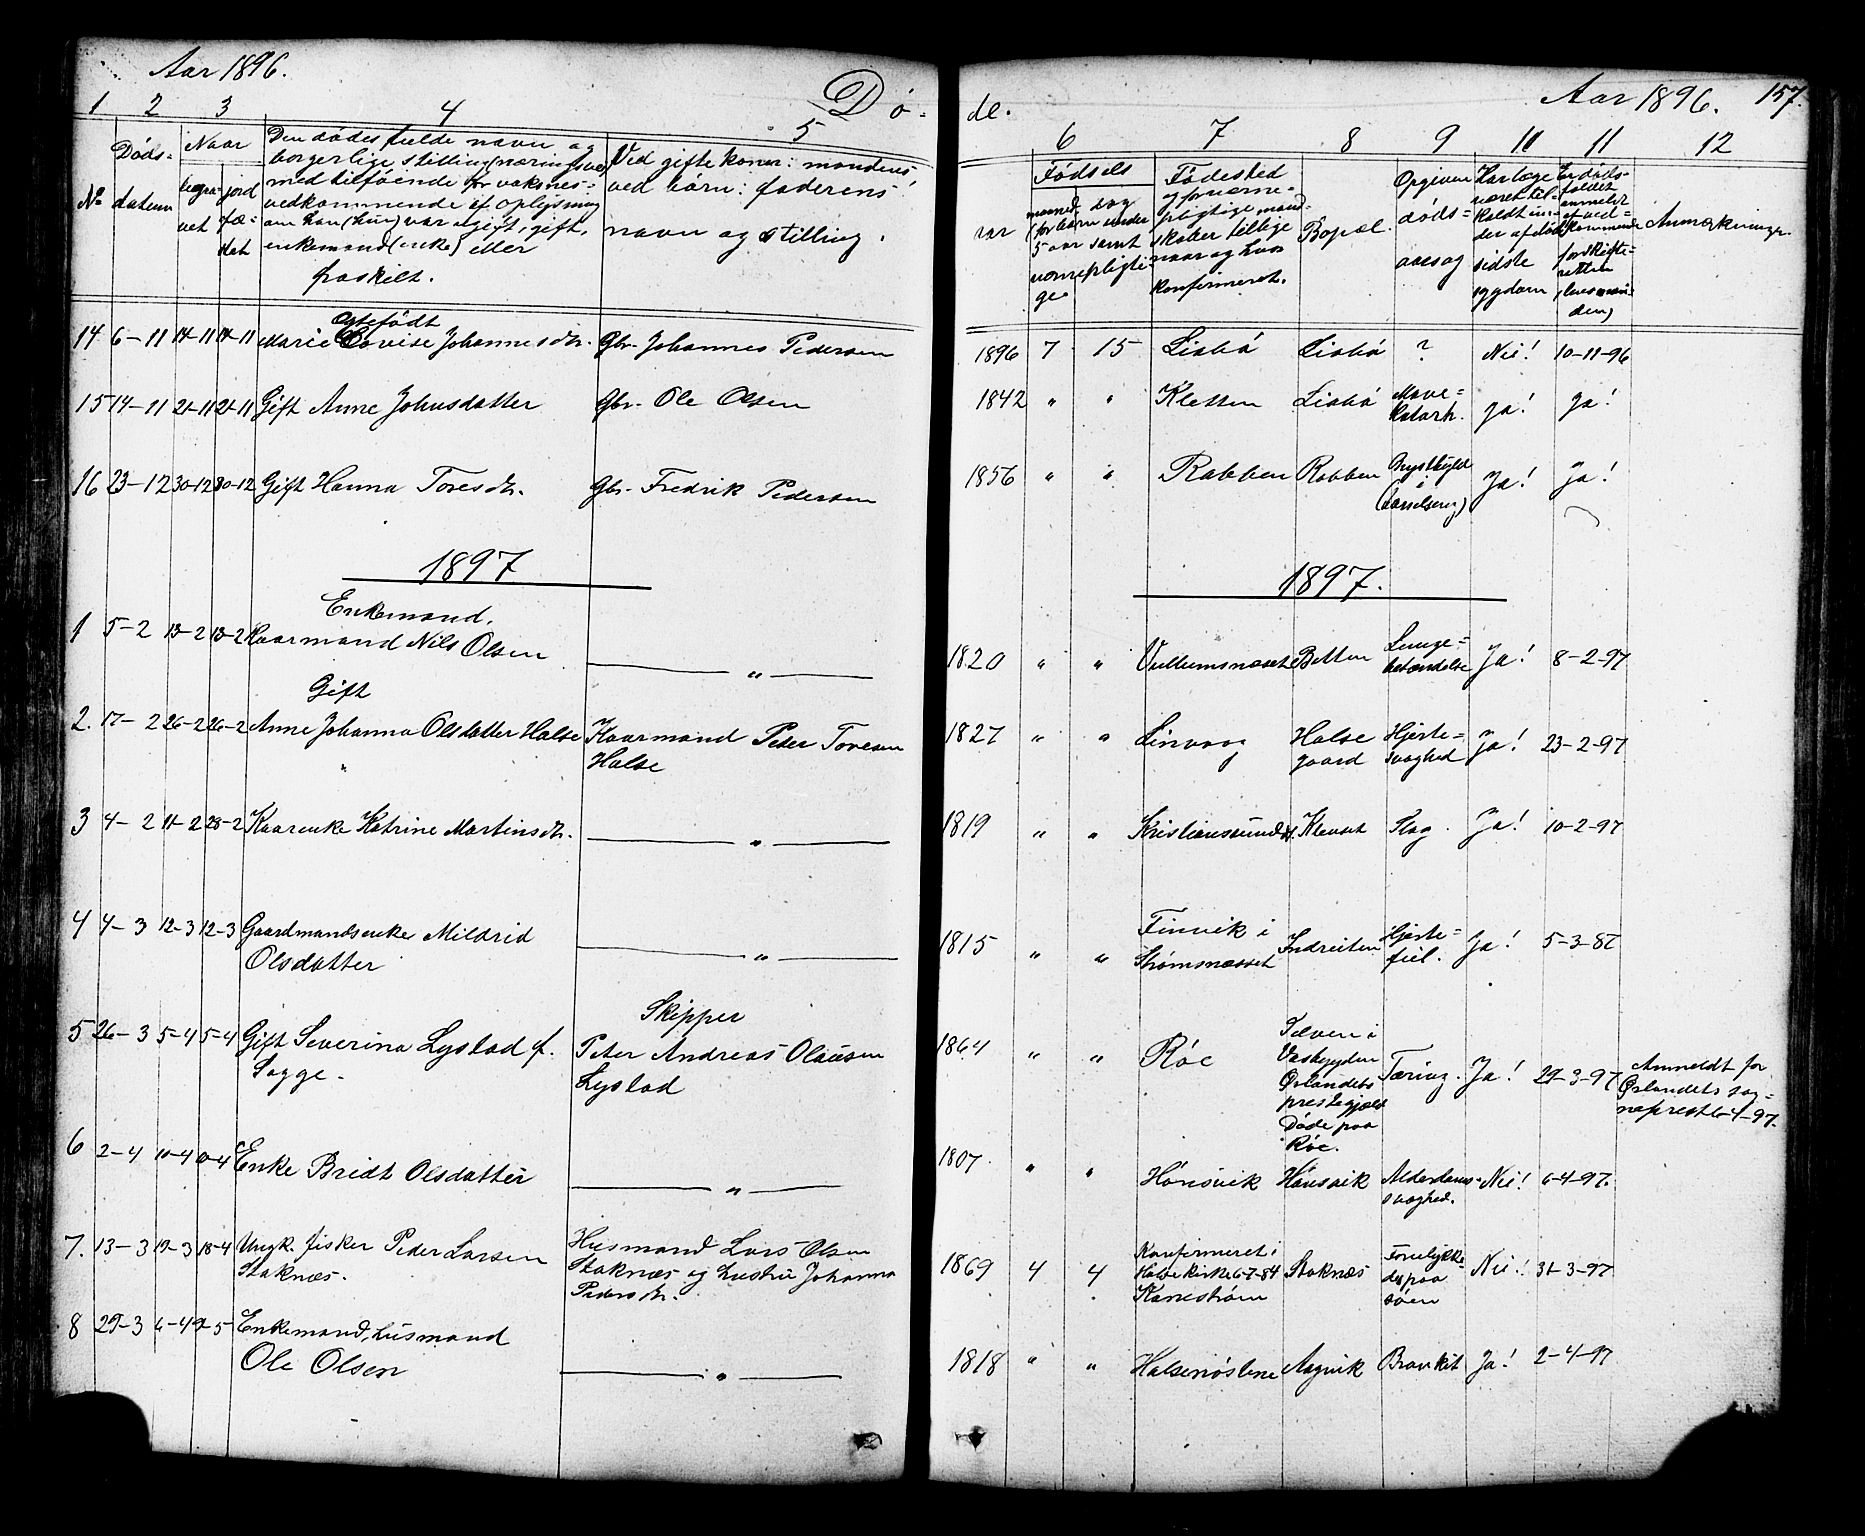 Aar 1896.
Dø-
de.
Aar 1896. 157.
1 2 3 4 5
6 7 8 9 10 11 12
No
Døds-
datum
Naar
begra-
vet
jord
fæ-
det
Den dødes fulde navn og
borgerlige stilling (næringsvei)
med tilføiende for voksnes
vedkommende af oplysning
om han (hun) var ugift, gift,
enkemand (enke) eller
fraskilt.
Ved gifte koner: mandens
ved børn: faderens
navn og stilling.
Fødsels
aar
maaned
dag
(for børn under
5 aar samt
vernepligti-
ge
Fødested
og for værne-
pligtige mand-
skaber tillige
naar og hvor
konfirmeret.
Bopæl.
Opgiven
døds-
aarsag
Har læge
været til-
kaldt un-
der afdødes
sidste
sygdom
Er døds-
faldet
anmeldt
af ved-
kommende
for skifte-
retten
(lensman-
den)
Anmærkninger.
14 6-11 14-11 14-11 Marie Lovise Johannesdtr. Gbr. Johannes Pedersen
Egtefødt
1896 7 15 Liabø Liabø ? Nei! 10-11-96
15 14-11 21-11 21-11 Gift Anne Johnsdatter Gbr. Ole Olsen
1842 " " Kletten Liabø Mave-
katarh. ja! ja!
16 23-12 30-12 30-12 Gift Hanna Toresdtr. Gbr. Fredrik Pedersen
1856 " " Rabben Rabben Brystbyld
i
(barselseng) Ja! ja!
1897
1897.
Enkemand.
1 5-2 13-2 13-2 Kaarmand Nils Olsen "
1820 " " Vullumsnæset Botten Lunge-
betændelse Ja! 8-2-97
Gift
2. 17-2 26-2 26-2 Anne Johanna Olsdatter Halse Kaarmand Peder Toresen
Halse
1827 " " Linvaag Halse
gaard Hjerte-
svaghed Ja! 23-2-97
3 4-2 11-2 28-2 Kaarenke Katrine Martinsdtr. "
1819 " " Kristiansund N. Klevset Slag. Ja! 10-2-97
4 4-3 12-3 12-3 Gaardmandsenke Mildrid
Olsdatter "
1815 " " Finvik i
Strømsnæsset Indreiten Hjerte-
feil. Ja! 5-3-87
5 26-3 5-4 5-4 Gift Severina Lystad f.
Sogge.
Skipper
Peter Andreas Olausen
Lystad
1864 " " Røe
i
Ørlandets
prestegjæld
Døde paa
Røe.
Tæring. Ja! 29-3-97 Anmeldt for
Ørlandets sog-
neprest 6-4-97.
6 2-4 10-4 10-4 Enke Bridt Olsdatter "
1807. " " Hønsvik Hønsvik Alderdoms-
svaghed. Nei! 6-4-97.
7. 13-3 19-3 18-4 Ungk. fisker Peder Larsen
Staknæs.
Husmand Lars Olsen
Staknæs og hustru Johanna
Pedersdtr.
1869 4 4 Konfirmeret i
Halse kirke 6-7-84
Kanestrøm Staknæs Forulykke-
de paa
søen Nei! 31-3-97
8 29-3 6-4 9-5 Enkemand, husmand
Ole Olsen "
1818 " " Halsenøstene Aagvik Bronkit Ja! 2-4-97